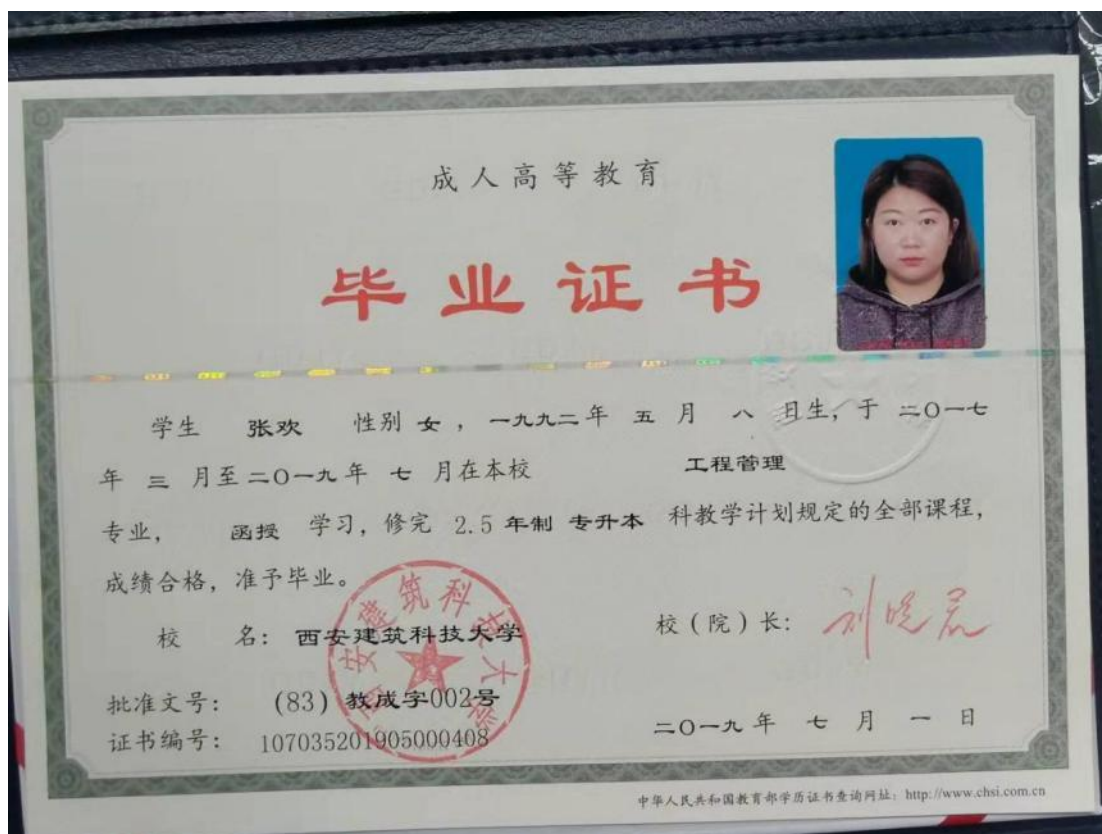 成人高等教育
毕业证书
学生 张欢 性别 女 ，一九九二年 五 月 八 日生，于 二〇一七
年 三 月至二〇一九年 七 月在本校 工程管理
专业， 函授 学习，修完 2.5 年制 专升本 科教学计划规定的全部课程，
成绩合格，准予毕业。
校 名：西安建筑科技大学
校（院）长：刘晓君
西安建筑科技大学
批准文号： (83) 教成字002号
证书编号： 107035201905000408
二〇一九年 七 月 一 日
中华人民共和国教育部学历证书查询网址：http://www.chsi.com.cn